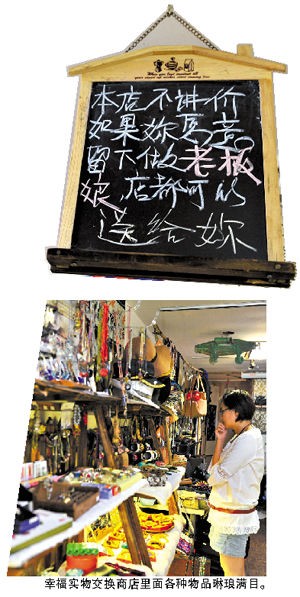 本店不讲价
如果妳愿意
留下做老板
娘,店都可以
送给妳
幸福实物交换商店里面各种物品琳琅满目。